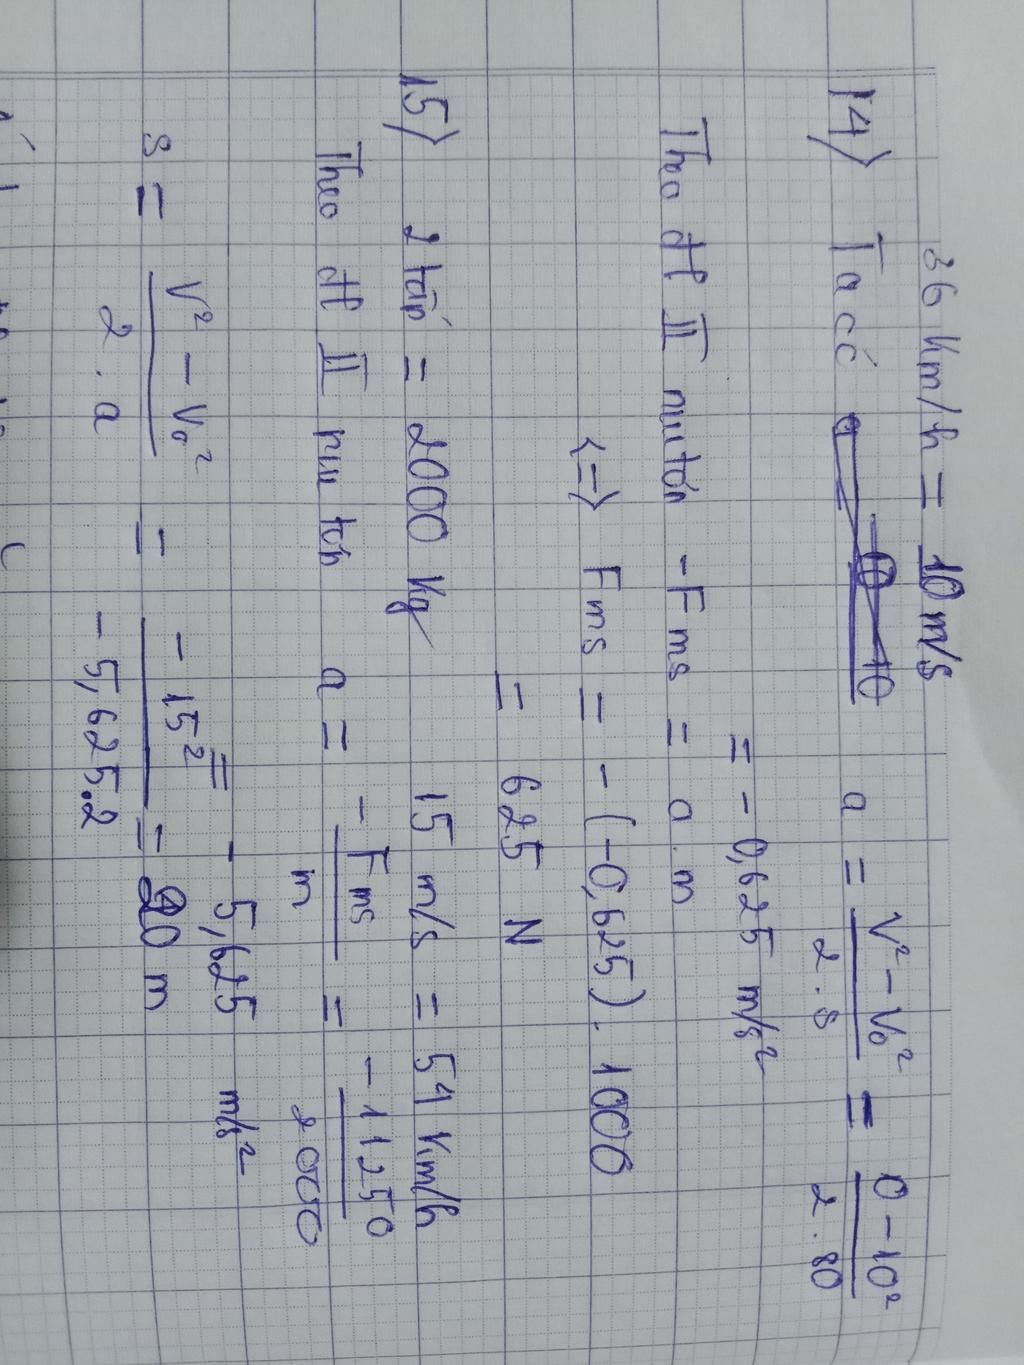 36 km/h = 10 m/s
14> Ta có a = V² - V₀² / 2 . s = 0 - 10² / 2 . 80
= - 0,625 m/s²
Theo đl II niu tơn - Fms = a . m
<=> Fms = - (-0,625) . 1000
= 625 N
15> 2 tấn = 2000 kg 15 m/s = 54 km/h
Theo đl II niu tơn a = - Fms / m = - 11250 / 2000
= - 5,625 m/s²
s = V² - V₀² / 2 . a = - 15² / - 5,625.2 = 20 m